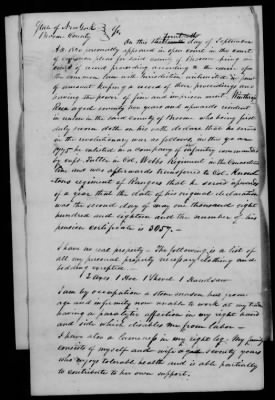 State of New York
Broome County } ss.
On this day of September
1820 personally appeared in open court in the court
of common pleas for said county of Broome being a
court of record proceeding according to the course of
the common law with Jurisdiction unlimited in point
of amount keeping a record of their proceedings and
having the power of fine and imprisonment
aged seventy two years and upwards resident
in Union in the said county of Broome who being first
duly sworn doth on his oath declare that he served
in the revolutionary war as follows, in the year
1775 he enlisted in a company of infantry commanded
by capt. in Col. Webbs Regiment in the Connecticut
line and was afterwards transferred to Col.
regiment of Rangers that he served upwards
of a year that the date of his original declaration
was the second day of may one thousand eight
hundred and eighteen and the number of his
pension certificate is 3057.
I have no real property — The following is a list of
all my personal property necessary clothing and
bedding excepted —
1 Hoe 1 Shovel 1 Handsaw
I am by occupation a stone mason but from
age and infirmity now unable to work at my trade
having a paralytic affection in my right hand
and side which disables me from labor —
I have also a lameness in my right leg. My family
consists of myself and wife aged seventy years
who enjoys tolerable health and is able partially
to contribute to her own support.